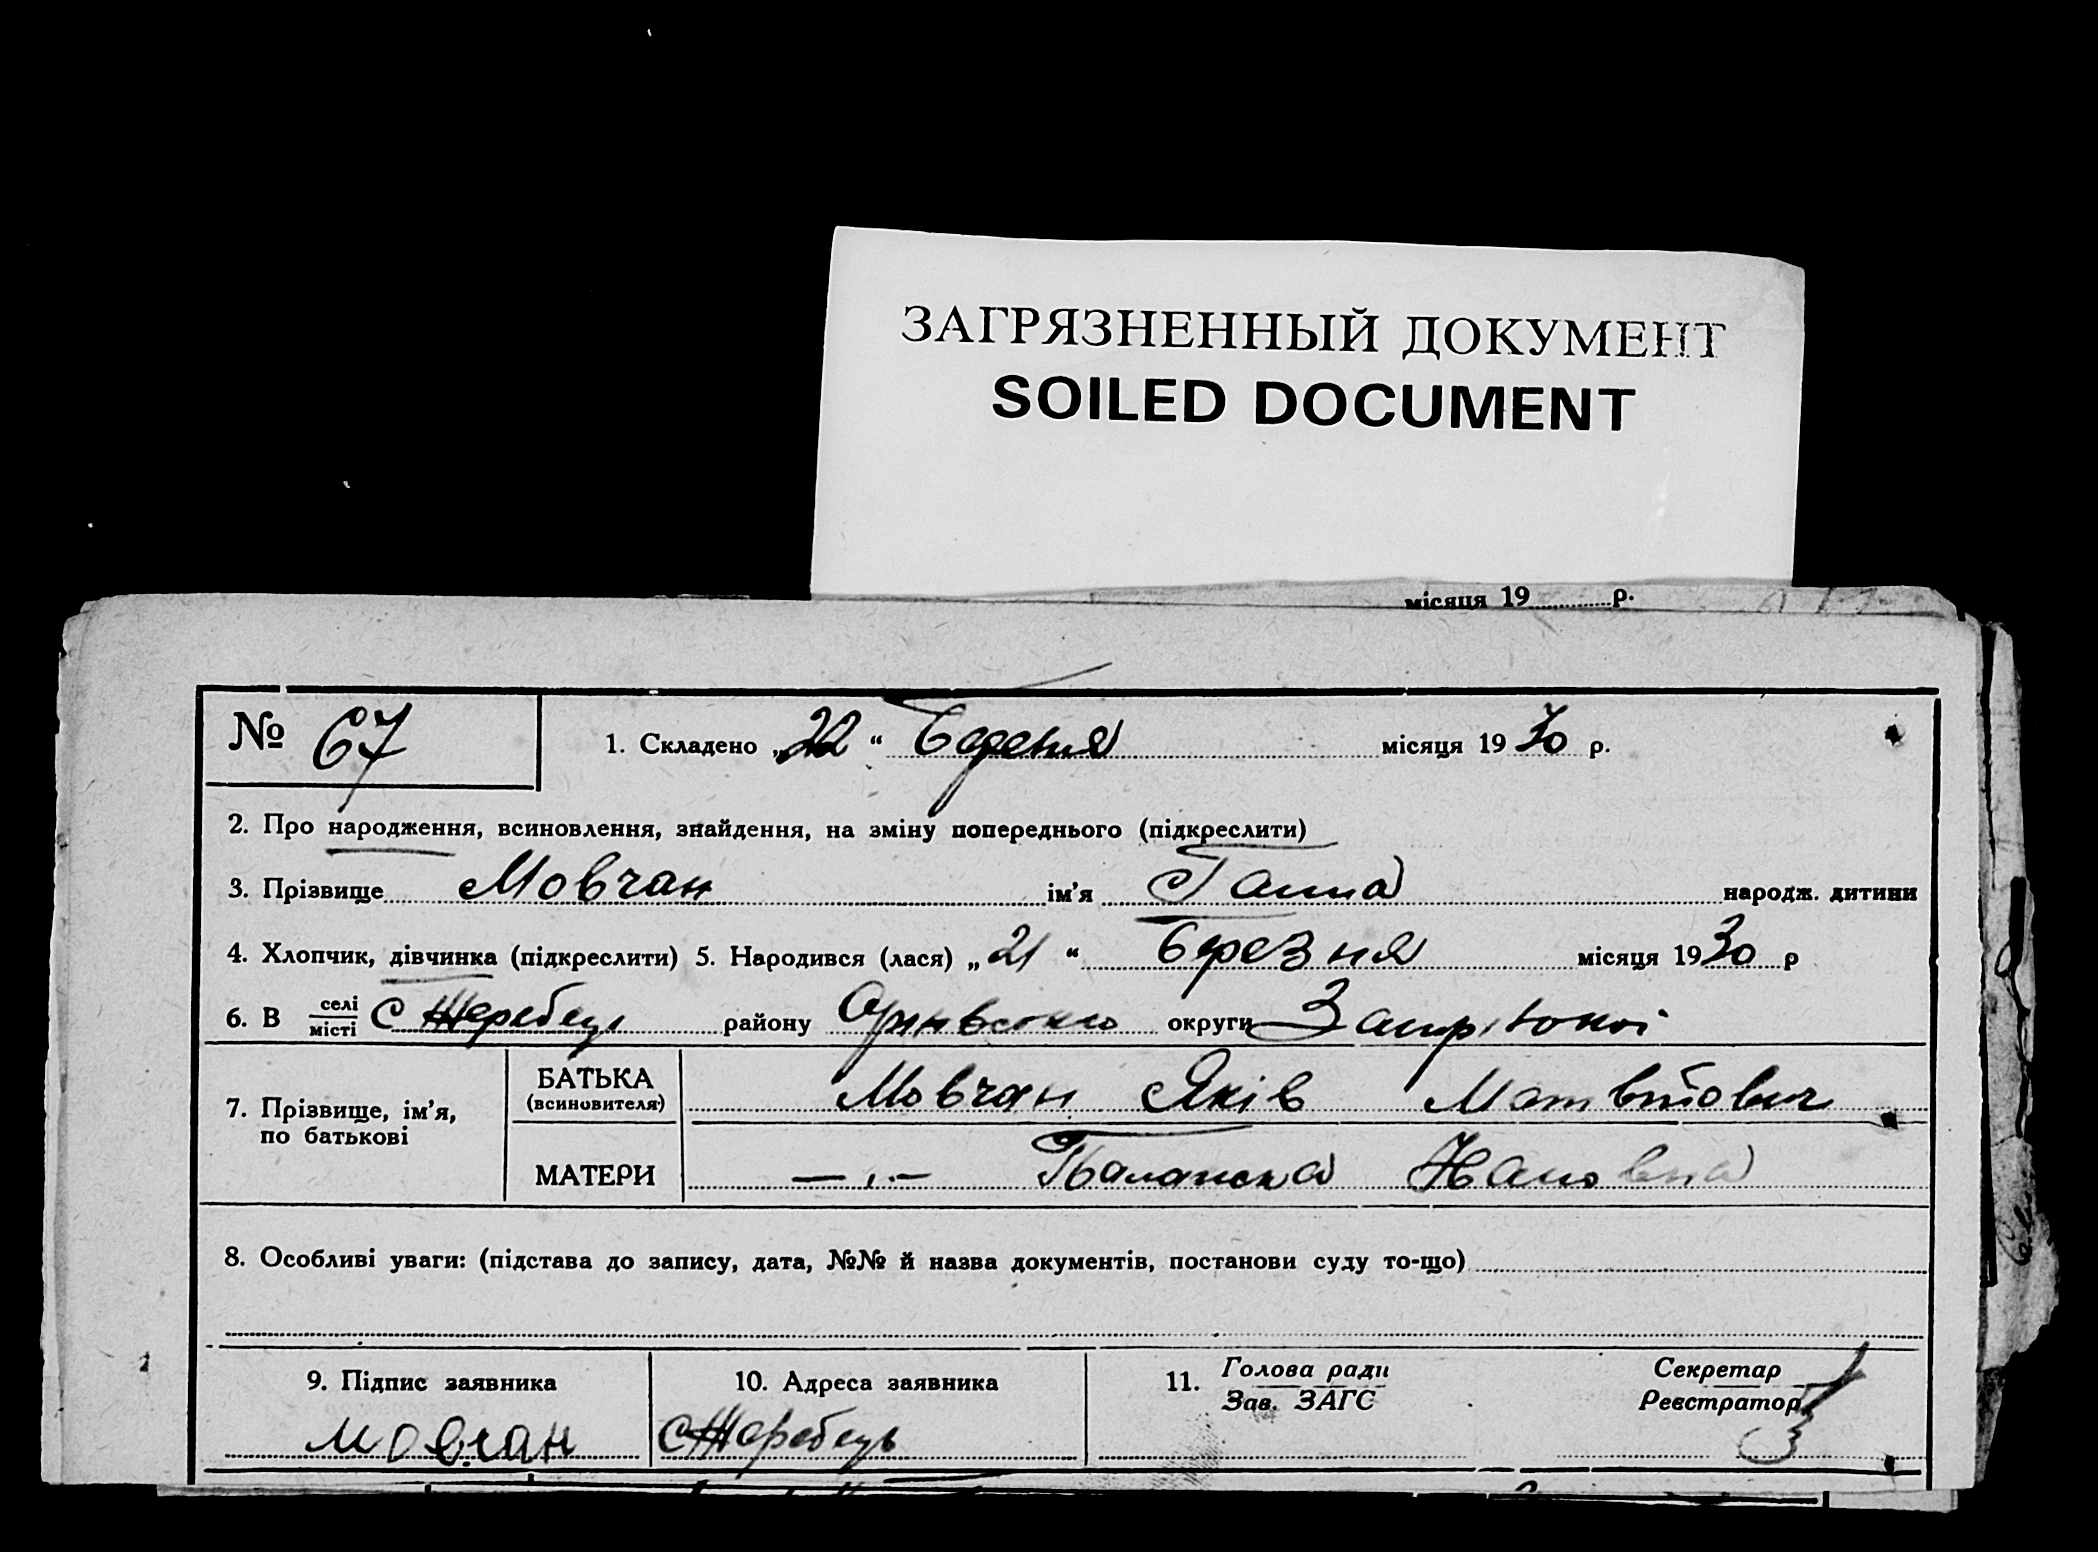 ЗАГРЯЗНЕННЫЙ ДОКУМЕНТ
SOILED DOCUMENT
місяця 19 р.
№ 67
1. Складено „22“ Березня місяця 1930 р.
2. Про народження, всиновлення, знайдення, на зміну попереднього (підкреслити)
3. Прізвище Мовчан ім'я Ганна народж. дитини
4. Хлопчик, дівчинка (підкреслити) 5. Народився (лася) „21“ Березня місяця 1930 р
6. В селі місті С Жеребець району округи
7. Прізвище, ім'я, по батькові
БАТЬКА (всиновителя) Мовчан Яків Матвійович
МАТЕРИ — „ —
8. Особливі уваги: (підстава до запису, дата, №№ й назва документів, постанови суду то-що)
9. Підпис заявника
Мовчан
10. Адреса заявника
С Жеребець
11. Голова ради
Зав. ЗАГС
Секретар
Реєстратор